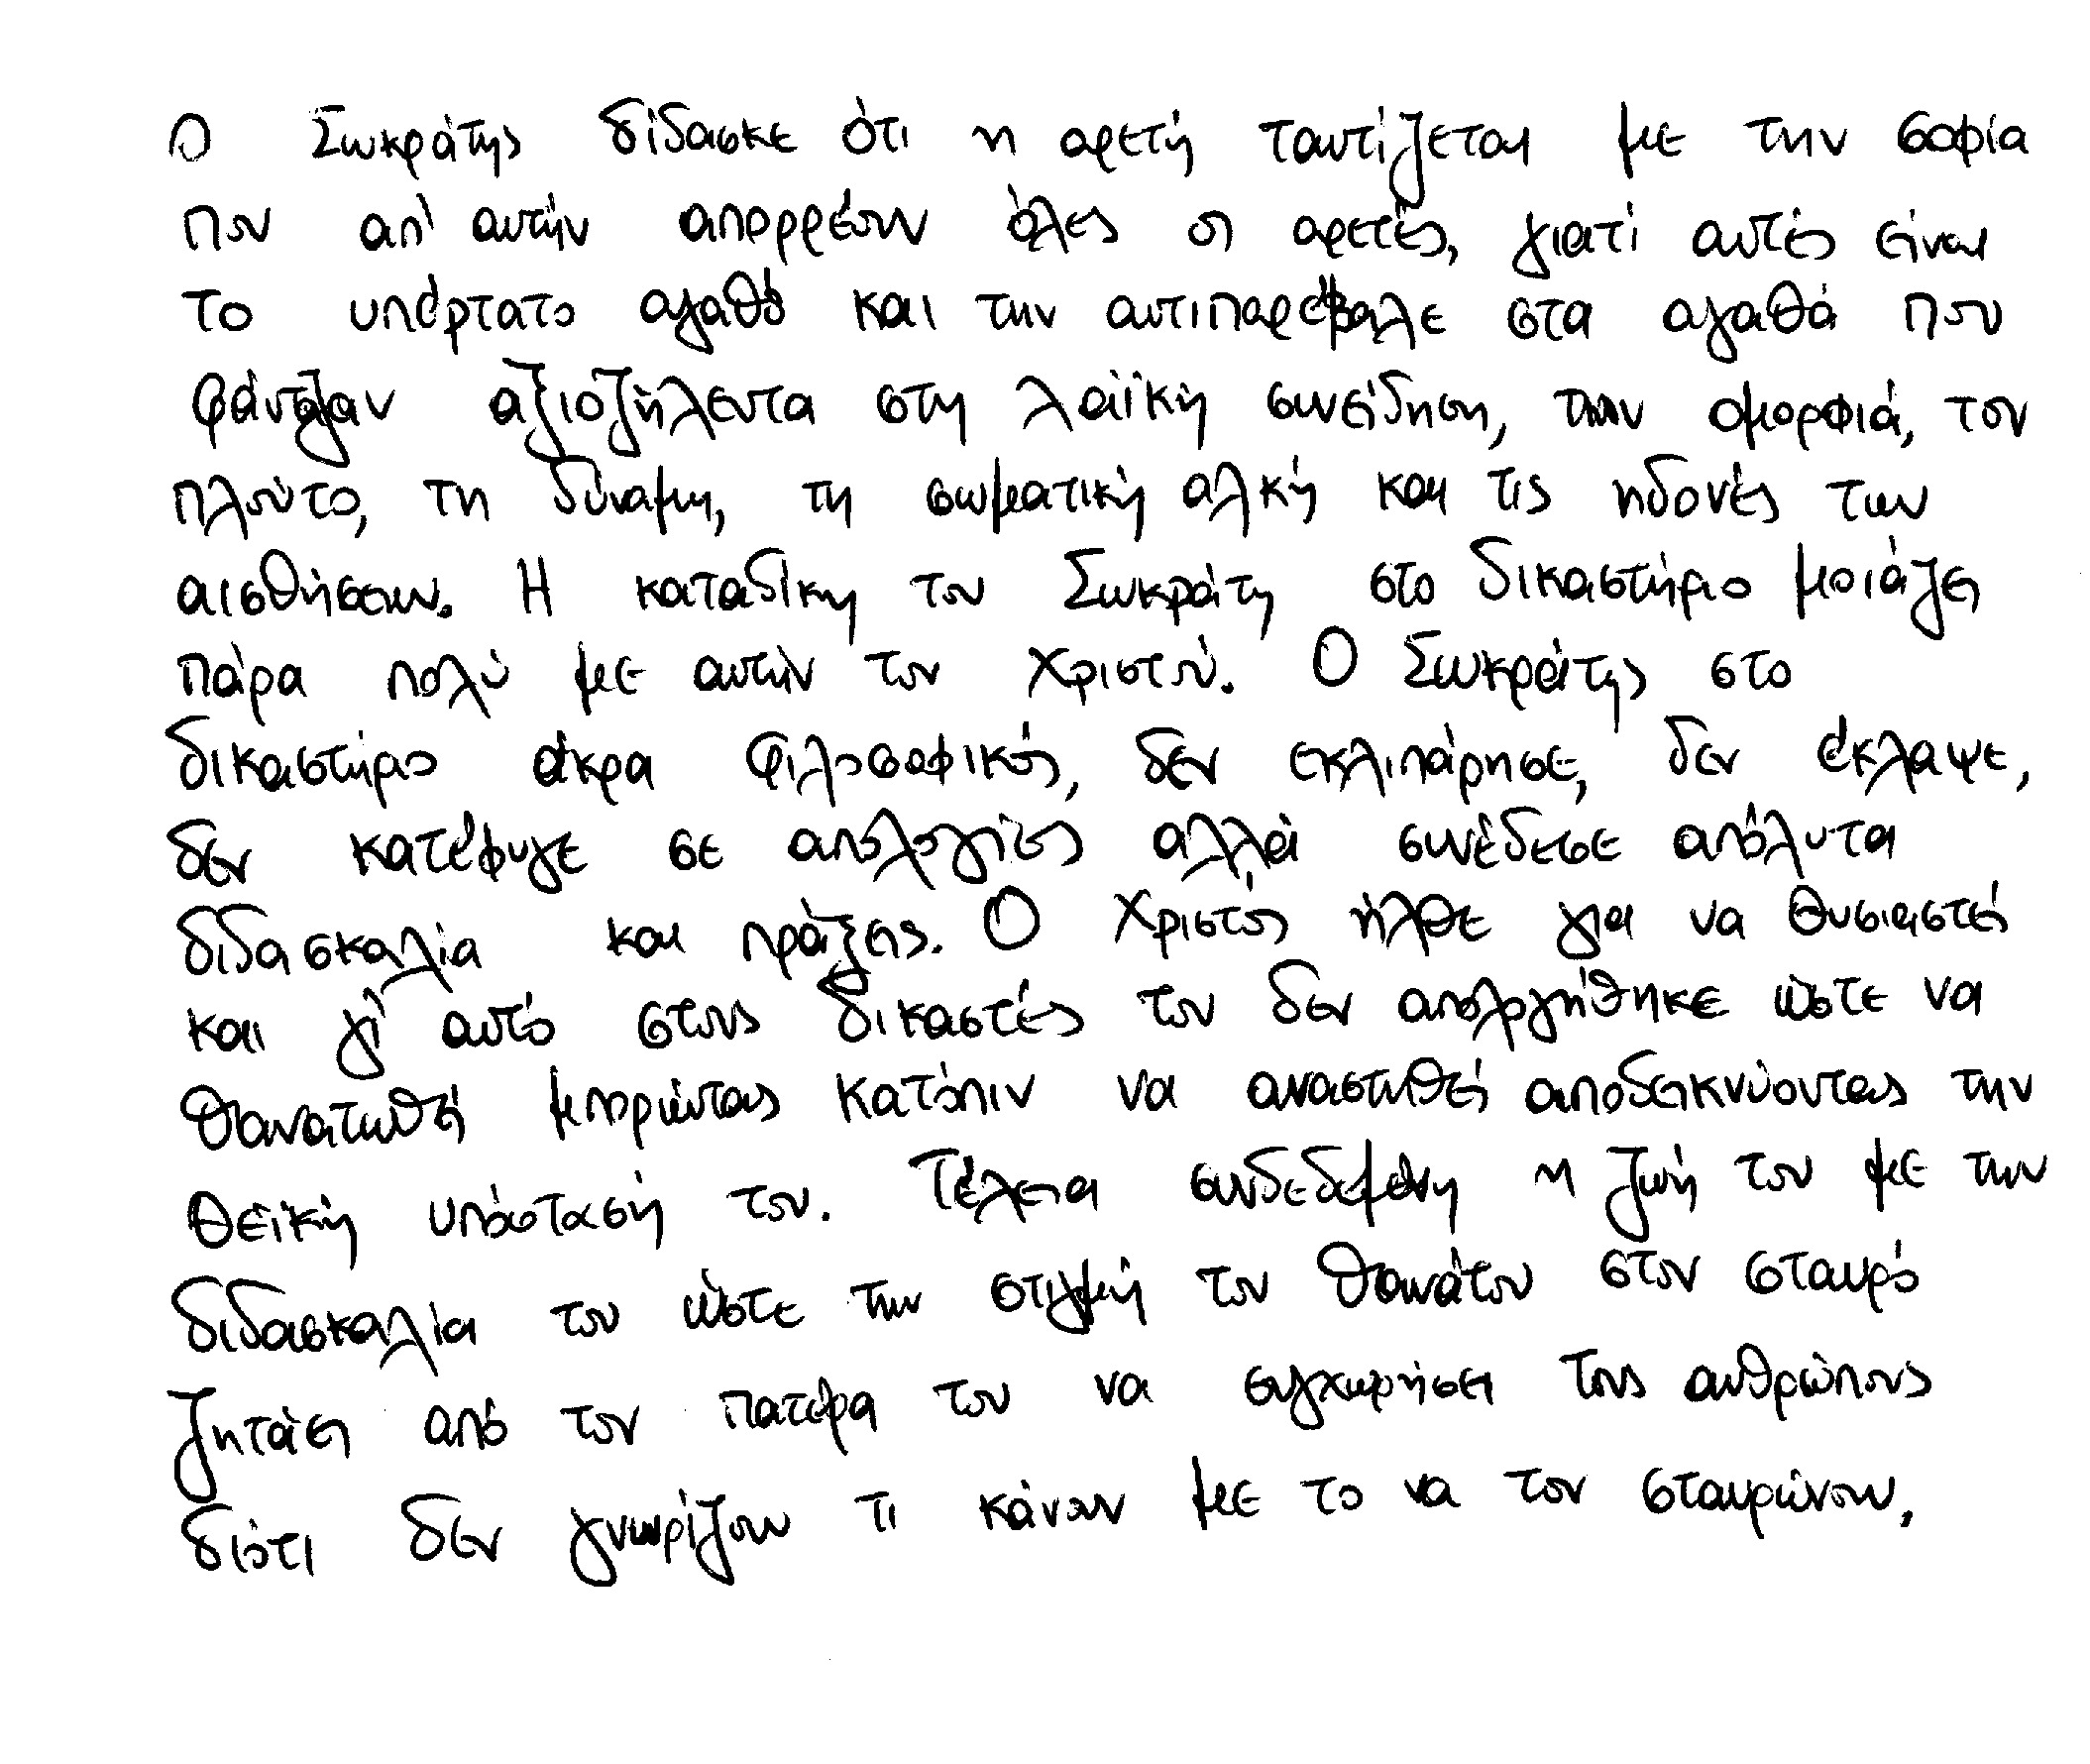 Ο Σωκράτης δίδασκε ότι η αρετή ταυτίζεται με την σοφία
που απ' αυτήν απορρέουν όλες οι αρετές, γιατί αυτές είναι
το υπέρτατο αγαθό και την αντιπαρέβαλε στα αγαθά που
φάνταζαν αξιοζήλευτα στη λαϊκή συνείδηση, την ομορφιά, τον
πλούτο, τη δύναμη, τη σωματική αλκή και τις ηδονές των
αισθήσεων. Η καταδίκη του Σωκράτη στο δικαστήριο μοιάζει
πάρα πολύ με αυτήν του Χριστού. Ο Σωκράτης στο
δικαστήριο άκρα φιλοσοφικός, δεν εκλιπάρησε, δεν έκλαψε,
δεν κατέφυγε σε απολογίες αλλά συνέδεσε απόλυτα
διδασκαλία και πράξεις. Ο Χριστός ήλθε για να θυσιαστεί
και γι' αυτό στους δικαστές του δεν απολογήθηκε ώστε να
θανατωθεί μπορώντας κατόπιν να αναστηθεί αποδεικνύοντας την
θεϊκή υπόστασή του. Τέλεια συνδεδεμένη η ζωή του με την
διδασκαλία του ώστε την στιγμή του θανάτου στον σταυρό
ζητάει από τον πατέρα του να συγχωρήσει τους ανθρώπους
διότι δεν γνωρίζουν τι κάνουν με το να τον σταυρώνουν.